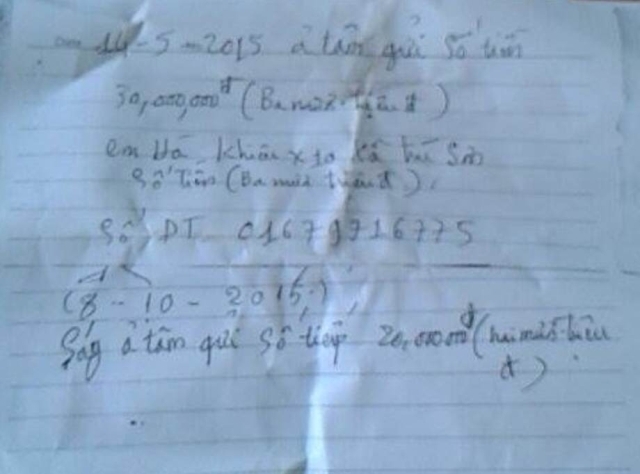 14-5-2015 ả tâm gửi Số tiền
30,000,000đ (Ba mươi triệu đ)
em Hà khâu x10 xã
Số Tiền (Ba mươi triệu đ).
Số ĐT 01679716775
(8-10-2015)
ả tâm gửi Số tiếp 20,000,000đ (hai mươi triệu
đ)